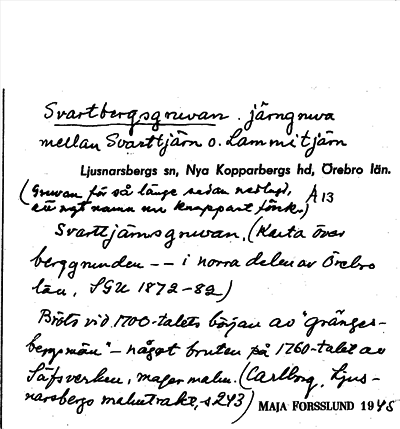 Svartbergsgruvan. järngruva
mellan Svarttjärn o. Lammitjärn
Ljusnarsbergs sn, Nya Kopparbergs hd, Örebro län.
(Gruvan för så länge sedan nedlagd, A 13
att ngt namn nu knappast finns.)
Svarttjärnsgruvan, (Karta över
berggrunden -- i norra delen av Örebro
län, SGU 1872-82)
Bröts vid 1700-talets början av "gränges-
bergsmän" - något bruten på 1760-talet av
Säfsverken, mager malm. (Carlborg, Ljus-
narsbergs malmtrakt, s 243) MAJA FORSSLUND 1945